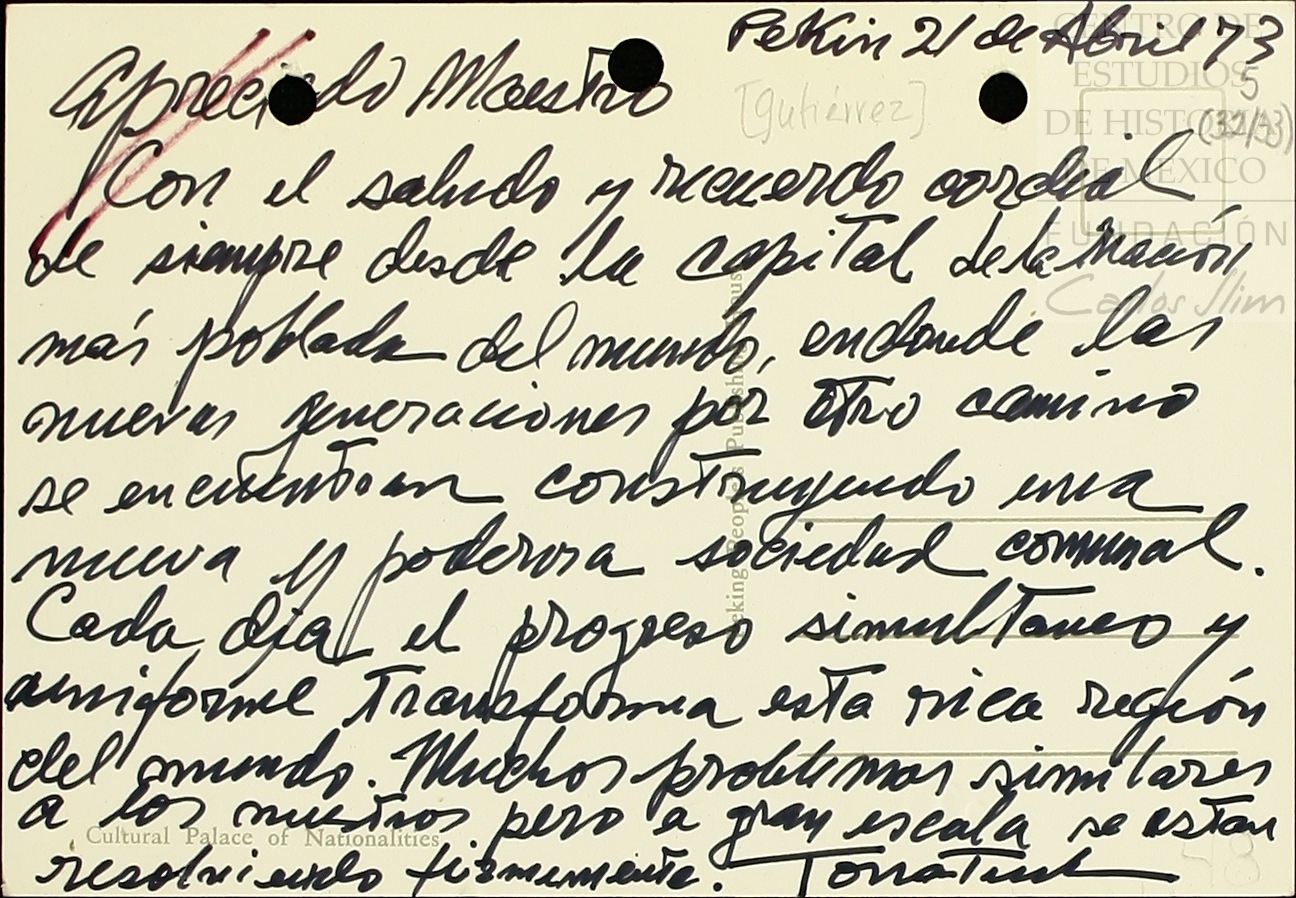 Pekin 21 de Abril 73
Apreciado Maestro
[Gutiérrez]
5
CENTRO DE
ESTUDIOS
DE HISTORIA
DE MÉXICO
FUNDACIÓN
Carlos Slim
Con el saludo y recuerdo cordial
de siempre desde la capital de la Nación
más poblada del mundo, endonde las
nuevas generaciones por otro camino
se encuentran construyendo una
nueva y poderosa sociedad comunal.
Cada día el progreso simultaneo y
uniforme transforma esta rica región
del mundo. Muchos problemas similares
a los nuestros pero a gran escala se estan
resolviendo firmemente.
Cultural Palace of Nationalities
Peking People's Publishing House